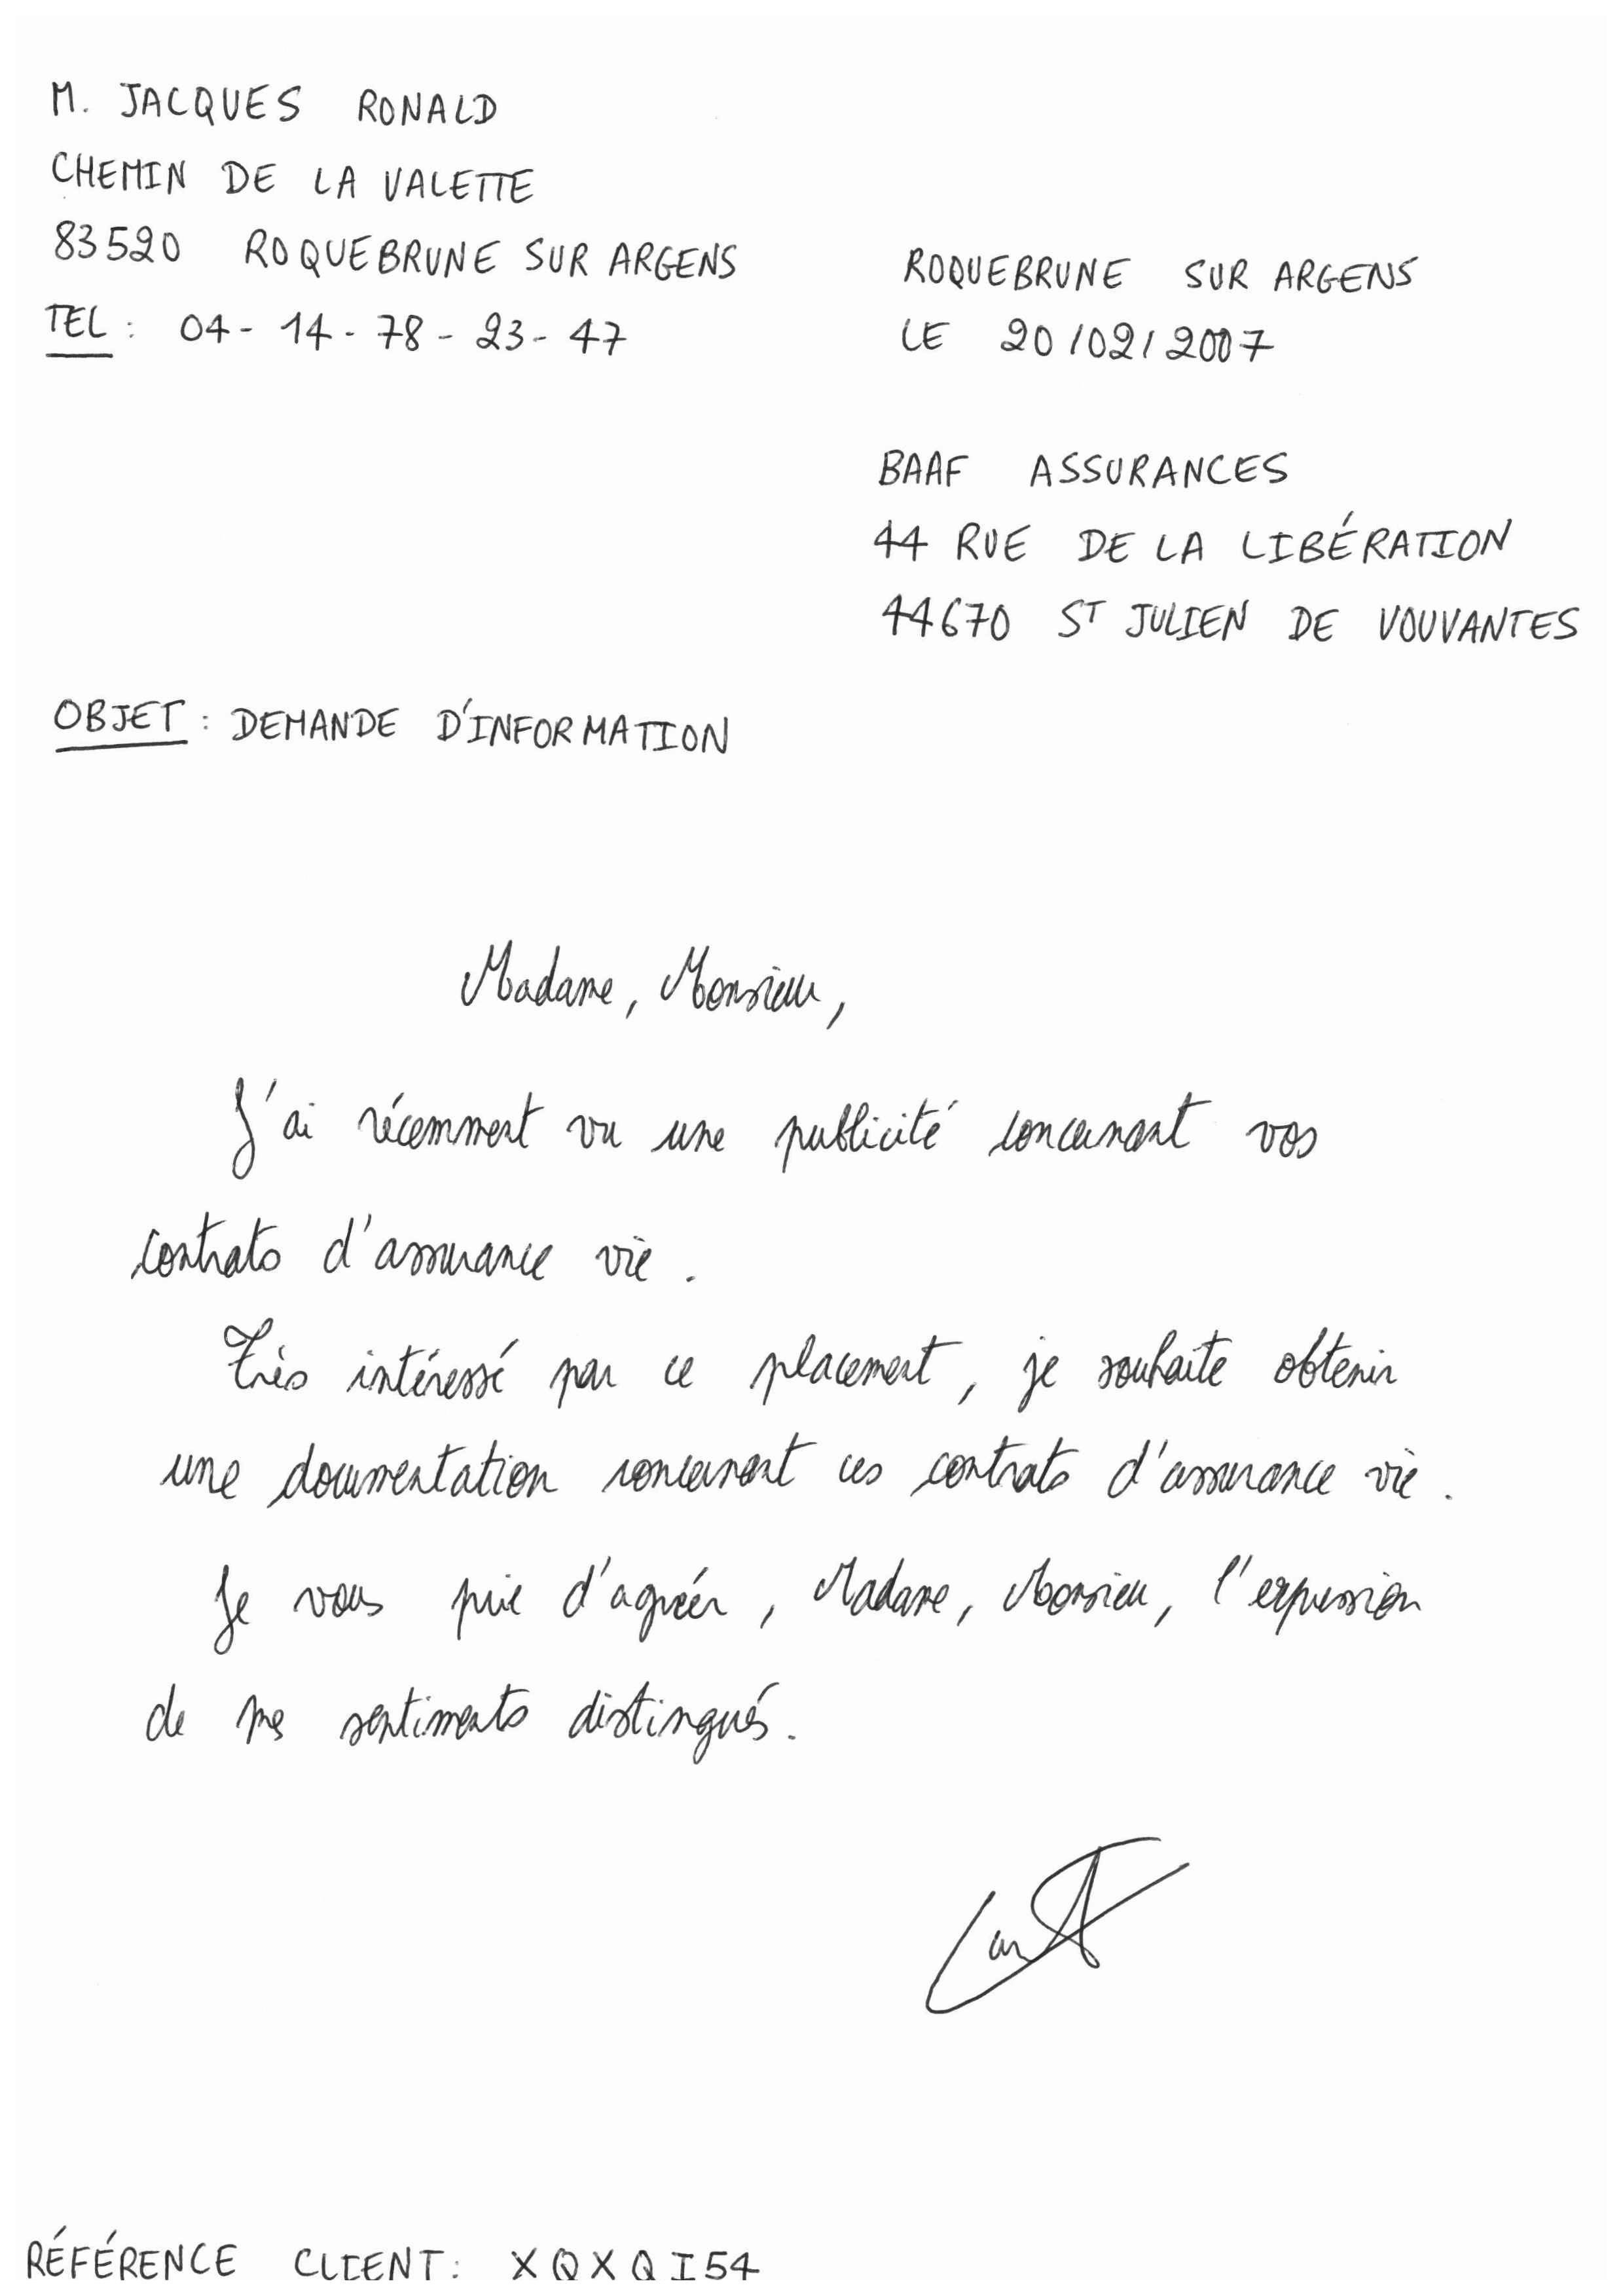 M. JACQUES RONALD
CHEMIN DE LA VALETTE
83520 ROQUEBRUNE SUR ARGENS
TEL : 04-14-78-23-47
ROQUEBRUNE SUR ARGENS
LE 20/02/2007
BAAF ASSURANCES
44 RUE DE LA LIBÉRATION
44670 ST JULIEN DE VOUVANTES
OBJET : DEMANDE D'INFORMATION
Madame, Monsieur,
J'ai récemment vu une publicité concernant vos
contrats d'assurance vie.
Très intéressé par ce placement, je souhaite obtenir
une documentation concernant ces contrats d'assurance vie.
Je vous prie d'agréer, Madame, Monsieur, l'expression
de mes sentiments distingués.
RÉFÉRENCE CLIENT : XQXQI54